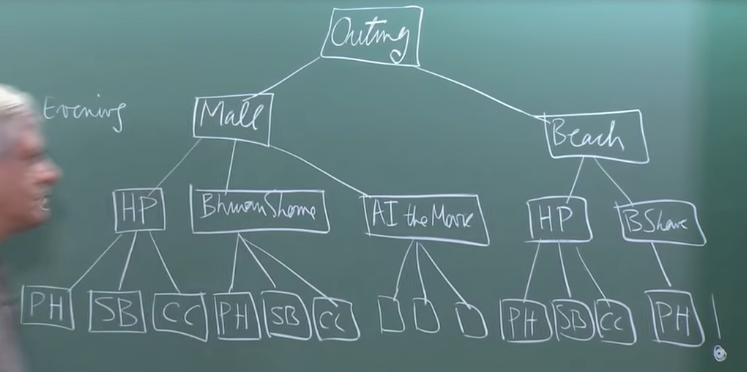 Outing
Evening
Mall
Beach
HP
Bhuvan Shome
AI the Movie
HP
B Shome
PH
SB
CC
PH
SB
CC
PH
SB
CC
PH
!